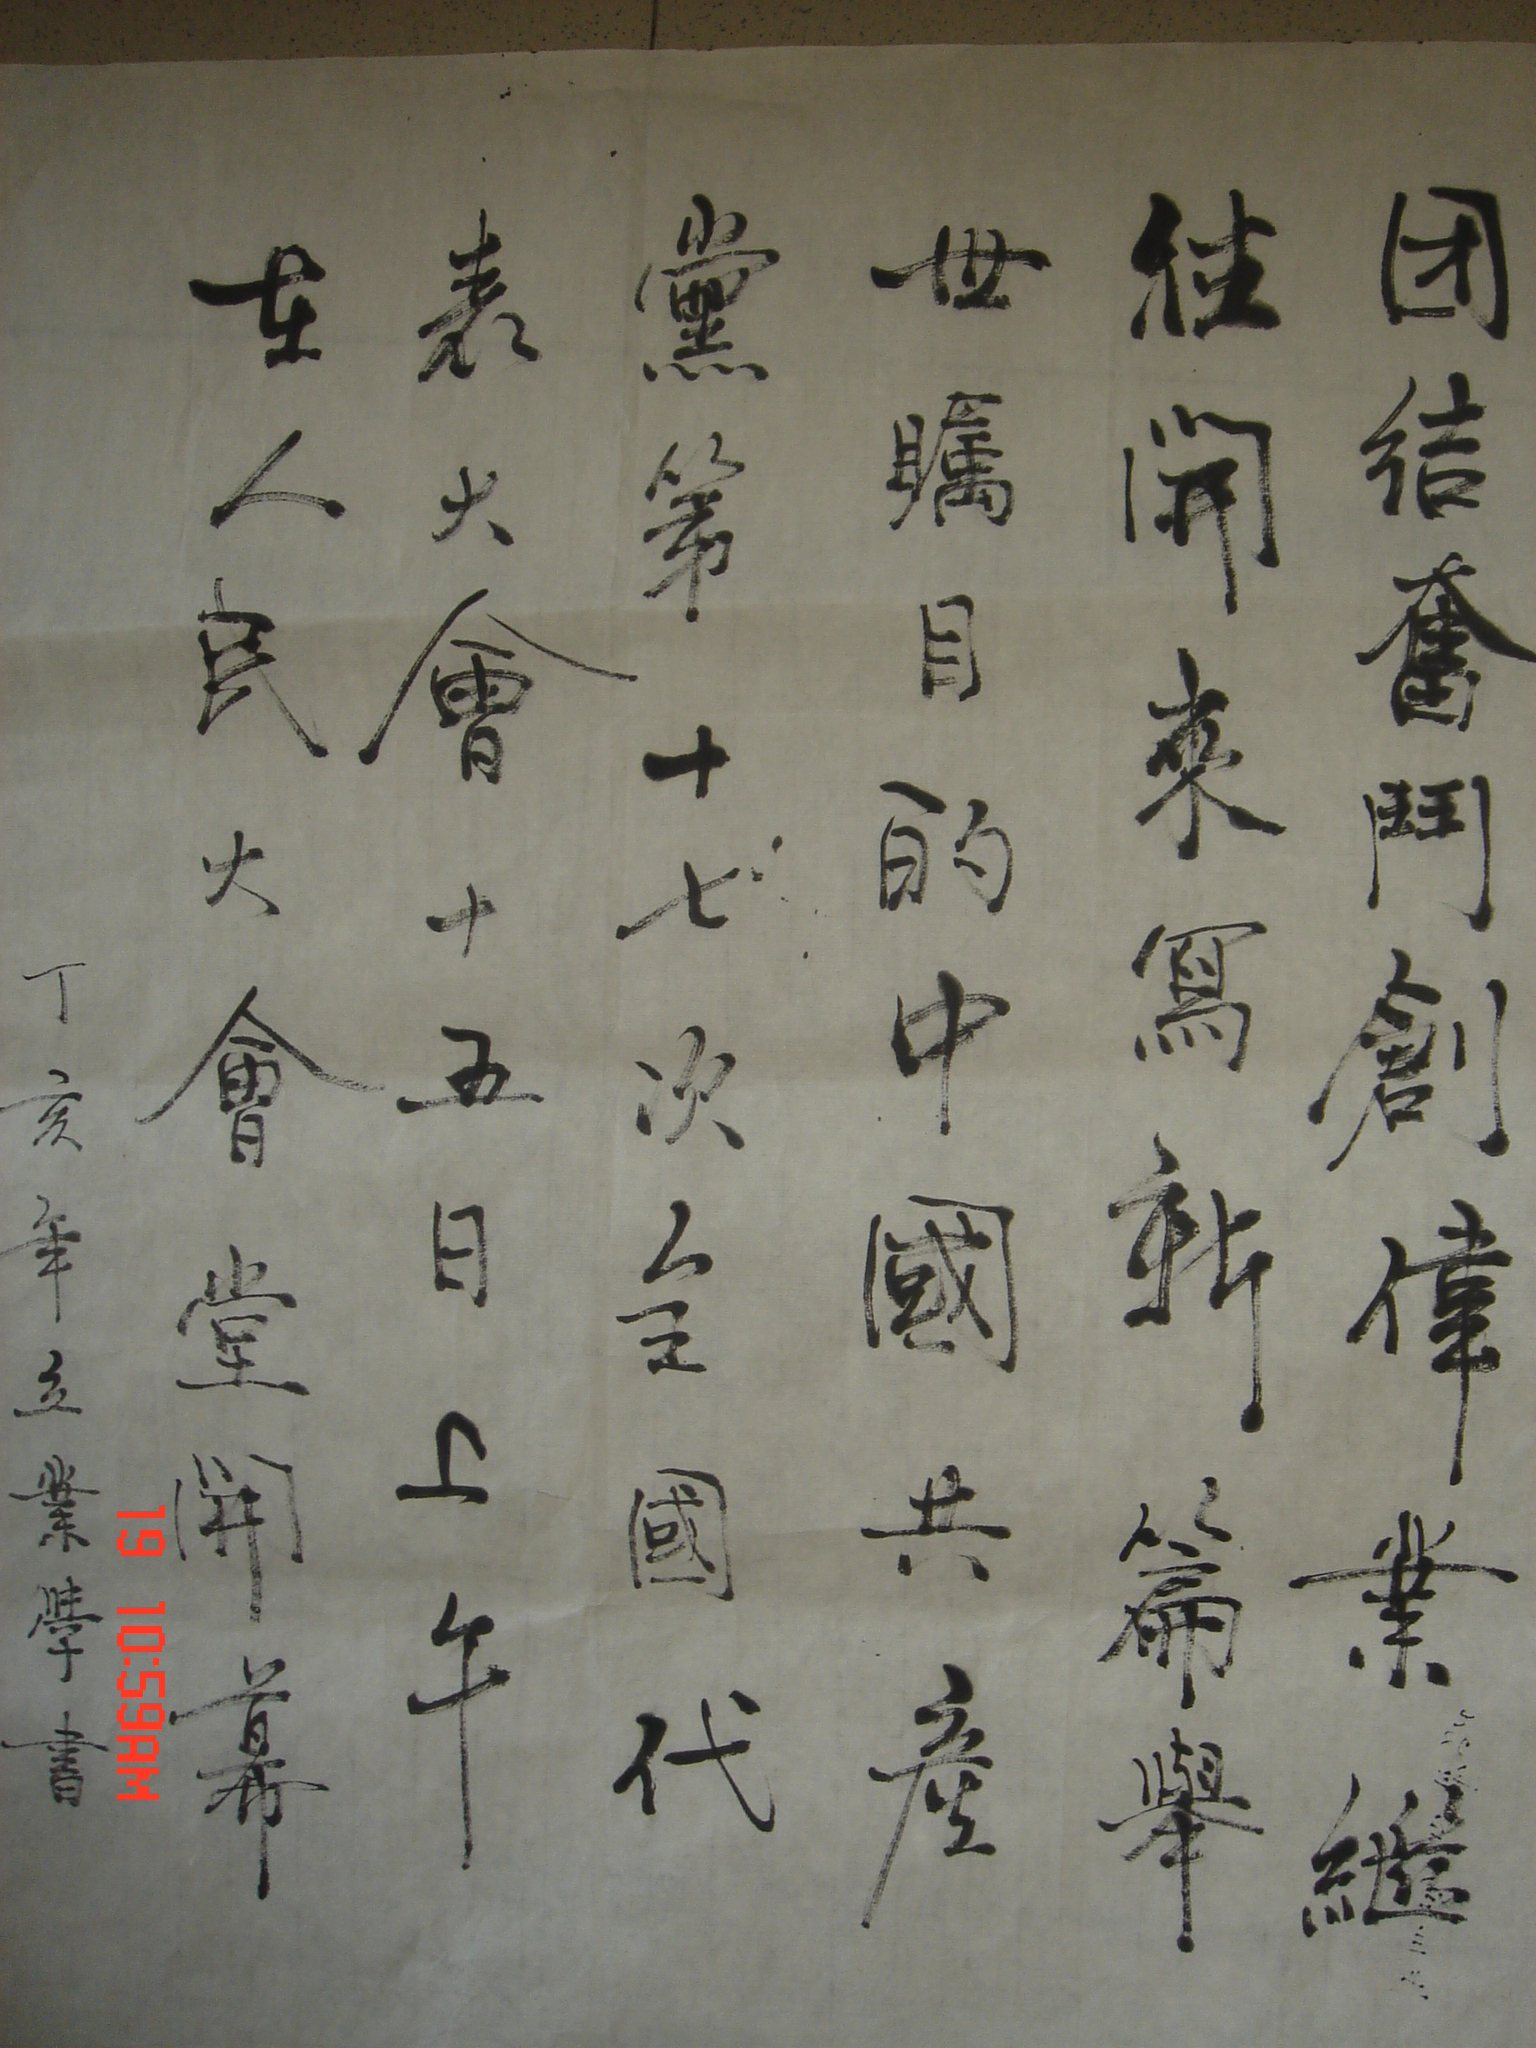 团结奮鬥創偉業繼
往開來寫新篇舉
世矚目的中國共産
黨第十七次全國代
表大會十五日上午
在人民大會堂開幕
丁亥年立業學書
19 10:59AM